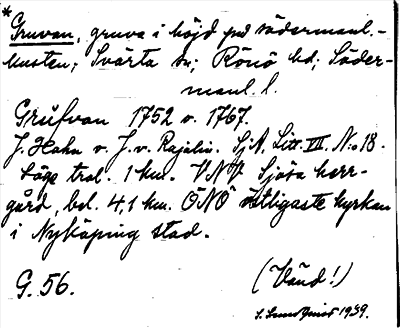 * Gruvan, gruva i höjd på södermanl.-
kusten; Svärta sn; Rönö hd; Söder-
manl. l.
Grufvan 1752 o. 1767.
J. Hahn o. J. v. Rajalin. SjA. Litt. VII. No 18.
Läge trol. 1 km. VNV Sjösa herr-
gård, bel. 4,1 km. ÖNÖ östligaste kyrkan
i Nyköping stad.
G. 56.
(Vänd!)
S. Lundquist 1939.